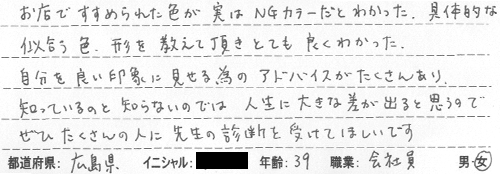 お店ですすめられた色が実はNGカラーだとわかった。具体的な
似合う色、形を教えて頂きとても良くわかった。
自分を良い印象に見せる為のアドバイスがたくさんあり、
知っているのと知らないのでは人生に大きな差が出ると思うので
ぜひたくさんの人に先生の診断を受けてほしいです
都道府県: 広島県 イニシャル: 年齢: 39 職業: 会社員 男・女